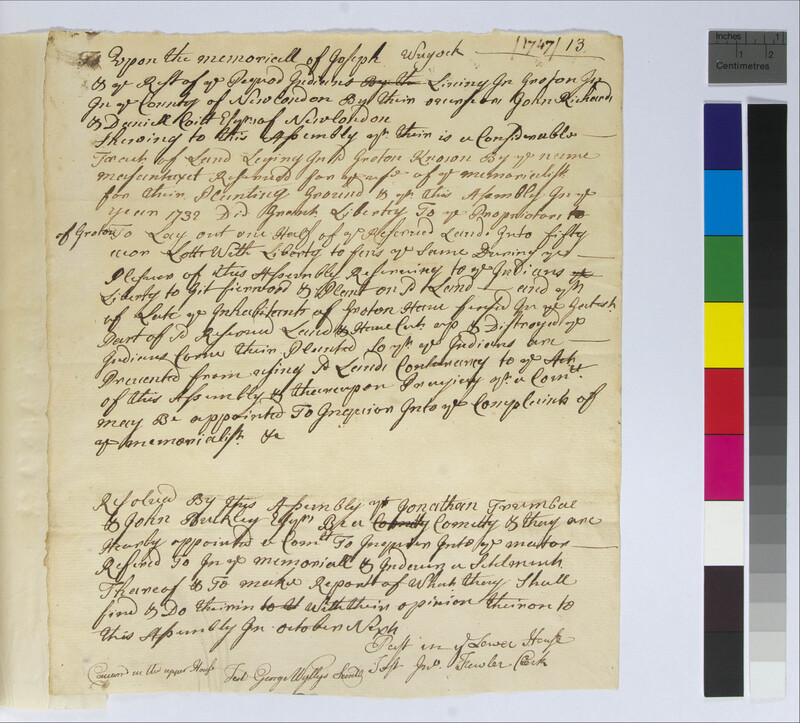 Upon the memoriall of Joseph Wuyock [1747] 13
& ye Rest of ye Pequod Indians By th Liveing In Groton In
In ye County of Newlondon By their overseers John Richards
& Daniell Coitt Esqrs of Newlondon
Shewing to this Assembly yt their is a Considerable
Tract of Land Leying In sd Groton Known By ye name
Mashantuxet Reserved for ye use of ye memorialists
for their Planting Ground & yt this Assembly In ye
year 1732 Did Grant Liberty To ye Proprietors to
of Groton To Lay out one Half of ye Reserved Lands Into fifty
acor Lotts With Liberty to fens ye Same During ye
Plesuer of this Assembly Reserveing to ye Indians ye
Liberty to Git fierwood & Plant on sd Land and yt
of Late ye Inhabitants of Groton Have fensed In ye Gratest
Part of sd Reserved Land & Have Cut up & Distroyed ye
Indians Corne their Planted So yt ye Indians are
Prevented from using sd Lands Contorarey to ye Act
of this Assembly & thereupon Praying yt a Comtt
may Be appointed To Inquier Into ye Complaints of
ye memorialists &c
Resolved By this Assembly yt Jonathan Trumbae
& John Bulkley Esqrs Be a Comitty Comitty & they are
Hearby appointed a Comtt To Inquier Into ye mator
Refered To In ye memoriall & Indevor a Setelment
Thareof & To make Report of What they Shall
find & Do theirin to th With their opinion theiron to
this Assembly In october Next
Past in ye Lower House
Test Jno. Fowler Clerk
Concurd in the upper House
Test George Wyllys Secrety
Inches 1
1 2
Centimetres